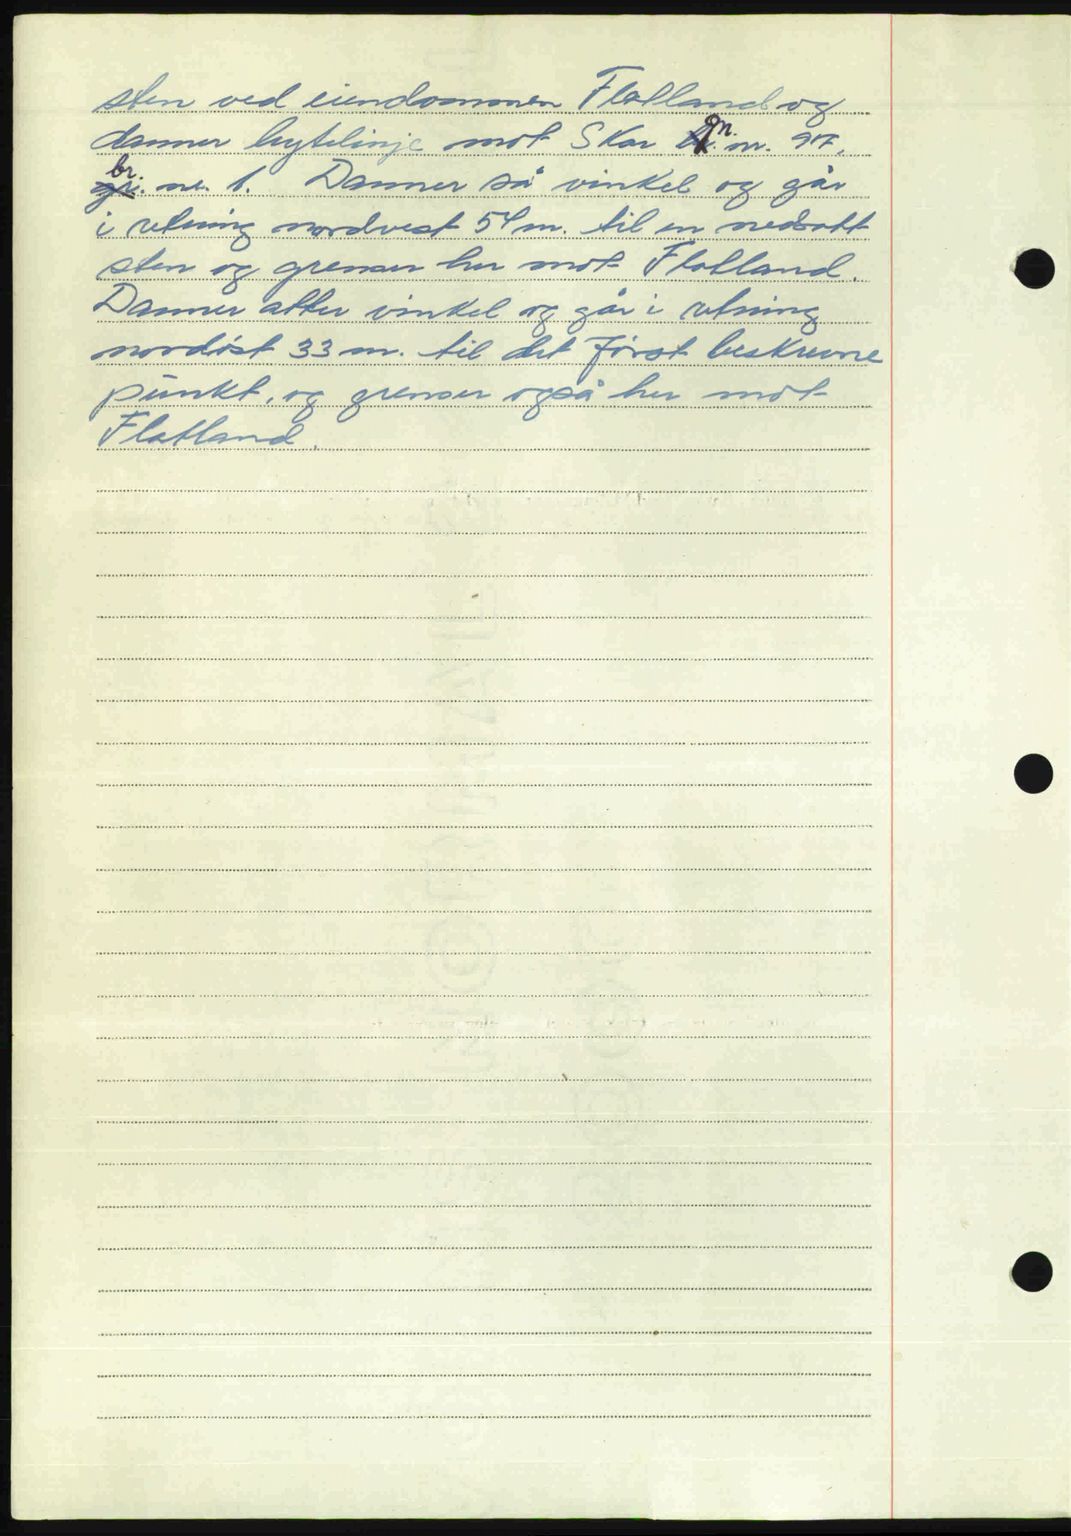 sten ved eiendommen Flatland og
danner bytelinje mot Skar gn. nr. 97,
br. nr. 1. Danner så vinkel og går
i retning nordvest 54 m. til en nedsatt
sten og grenser her mot Flatland.
Danner atter vinkel og går i retning
nordöst 33 m. til det først beskrevne
punkt, og grenser også her mot
Flatland.